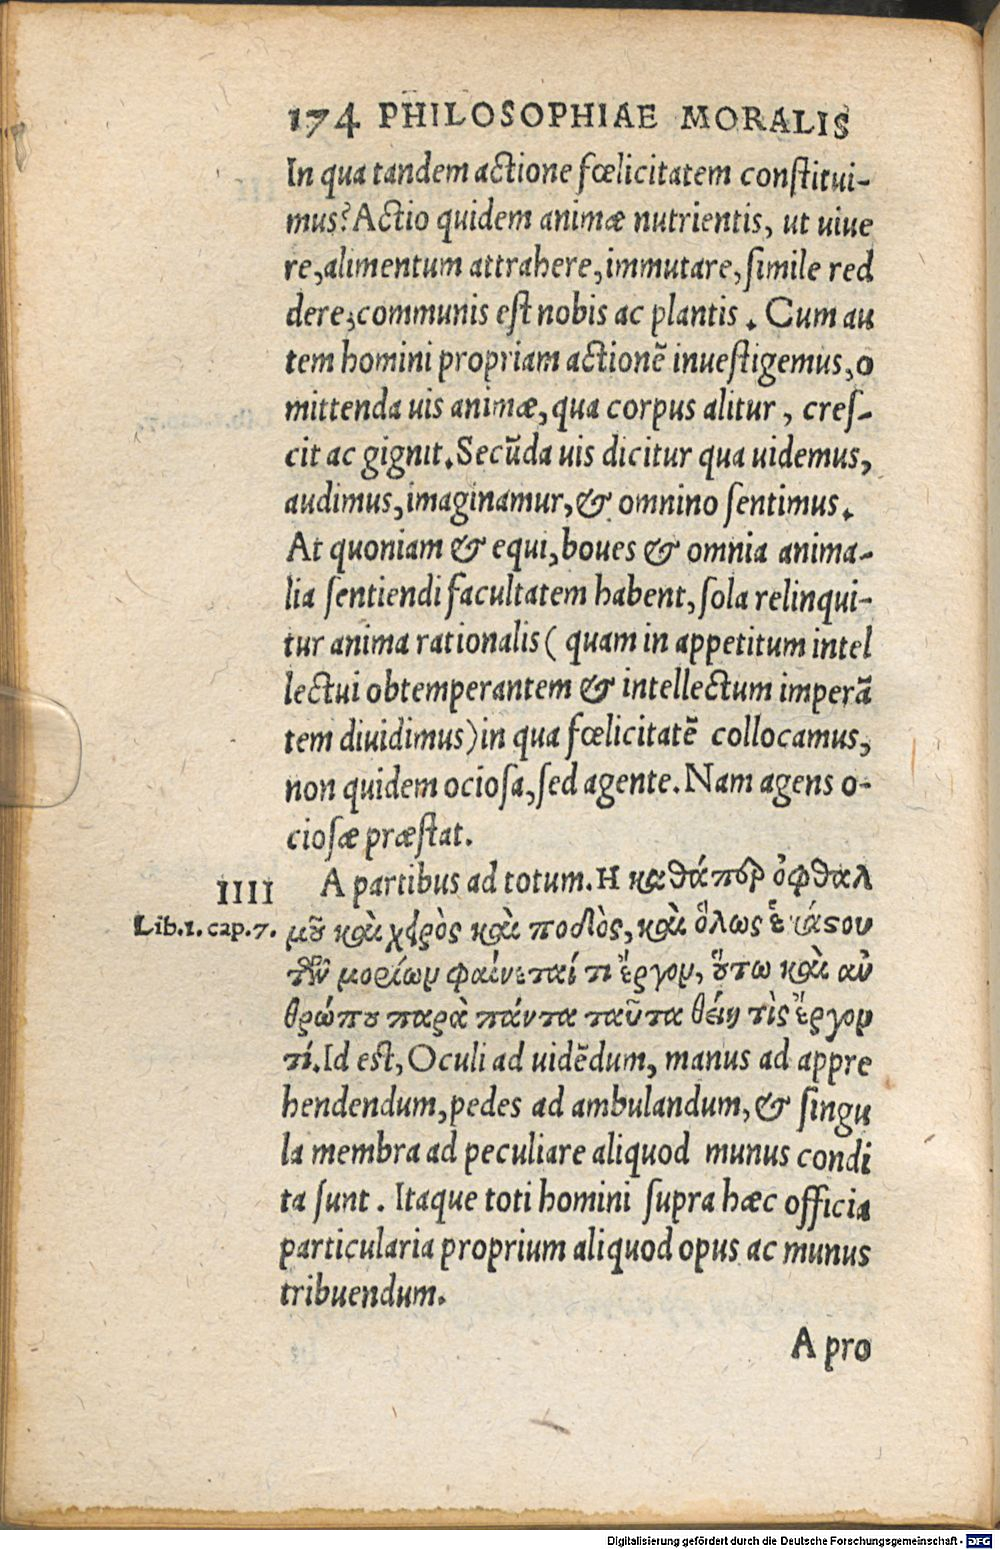 174 PHILOSOPHIAE MORALIS
In qua tandem actione fœlicitatem constitui-
mus? Actio quidem animæ nutrientis, ut uiue
re, alimentum attrahere, immutare, simile red
dere, communis est nobis ac plantis. Cum au
tem homini propriam actionẽ inuestigemus, o
mittenda uis animæ, qua corpus alitur, cres-
cit ac gignit. Secũda uis dicitur qua uidemus,
audimus, imaginamur, & omnino sentimus.
At quoniam & equi, boues & omnia anima-
lia sentiendi facultatem habent, sola relinqui-
tur anima rationalis (quam in appetitum intel
lectui obtemperantem & intellectum imperã
tem diuidimus) in qua fœlicitatẽ collocamus,
non quidem ociosa, sed agente. Nam agens o-
ciosæ præstat.
IIII A partibus ad totum. Η καθάπερ ὀφθαλ
Lib. 1. cap. 7. μοῦ καὶ χειρὸς καὶ ποδὸς, καὶ ὅλως ἑκάστου
τῶν μορίων φαίνεταί τι ἔργον, οὕτω καὶ ἀν
θρώπου παρὰ πάντα ταῦτα θείη τὶς ἔργον
τί. Id est, Oculi ad uidẽdum, manus ad appre
hendendum, pedes ad ambulandum, & singu
la membra ad peculiare aliquod munus condi
ta sunt. Itaque toti homini supra hæc officia
particularia proprium aliquod opus ac munus
tribuendum.
A pro
Digitalisierung gefördert durch die Deutsche Forschungsgemeinschaft - DFG